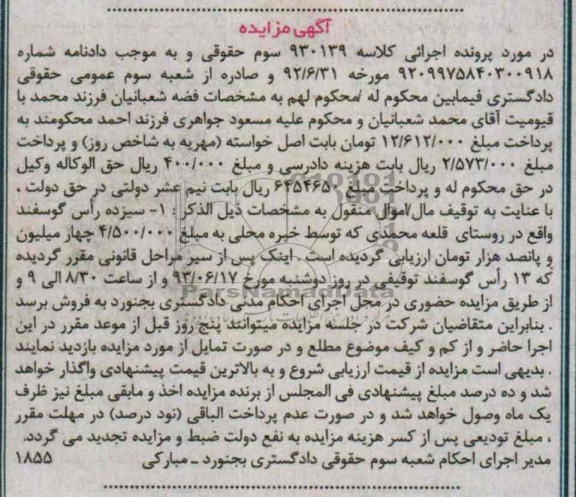 آگهی مزایده
در مورد پرونده اجرائی کلاسه ۹۳۰۱۳۹ سوم حقوقی و به موجب دادنامه شماره
۹۲۰۹۹۷۵۸۴۰۳۰۰۹۱۸ مورخه ۹۲/۶/۳۱ و صادره از شعبه سوم عمومی حقوقی
دادگستری فیمابین محکوم له /محکوم لهم به مشخصات فضه شعبانیان فرزند محمد با
قیومیت آقای محمد شعبانیان و محکوم علیه مسعود جواهری فرزند احمد محکومند به
پرداخت مبلغ ۱۲/۶۱۲/۰۰۰ تومان بابت اصل خواسته (مهریه به شاخص روز) و پرداخت
مبلغ ۲/۵۷۳/۰۰۰ ریال بابت هزینه دادرسی و مبلغ ۴۰۰/۰۰۰ ریال حق الوکاله وکیل
در حق محکوم له و پرداخت مبلغ ۶۴۵۴۶۵۰ ریال بابت نیم عشر دولتی در حق دولت ،
با عنایت به توقیف مال/اموال منقول به مشخصات ذیل الذکر : ۱- سیزده رأس گوسفند
واقع در روستای قلعه محمدی که توسط خبره محلی به مبلغ ۴/۵۰۰/۰۰۰ چهار میلیون
و پانصد هزار تومان ارزیابی گردیده است . اینک پس از سیر مراحل قانونی مقرر گردیده
که ۱۳ رأس گوسفند توقیفی در روز دوشنبه مورخ ۹۳/۰۶/۱۷ و از ساعت ۸/۳۰ الی ۹ و
از طریق مزایده حضوری در محل اجرای احکام مدنی دادگستری بجنورد به فروش برسد
. بنابراین متقاضیان شرکت در جلسه مزایده میتوانند پنج روز قبل از موعد مقرر در این
اجرا حاضر و از کم و کیف موضوع مطلع و در صورت تمایل از مورد مزایده بازدید نمایند
. بدیهی است مزایده از قیمت ارزیابی شروع و به بالاترین قیمت پیشنهادی واگذار خواهد
شد و ده درصد مبلغ پیشنهادی فی المجلس از برنده مزایده اخذ و مابقی مبلغ نیز ظرف
یک ماه وصول خواهد شد و در صورت عدم پرداخت الباقی (نود درصد) در مهلت مقرر
، مبلغ تودیعی پس از کسر هزینه مزایده به نفع دولت ضبط و مزایده تجدید می گردد.
مدیر اجرای احکام شعبه سوم حقوقی دادگستری بجنورد ـ مبارکی ۱۸۵۵
ParsNamadData